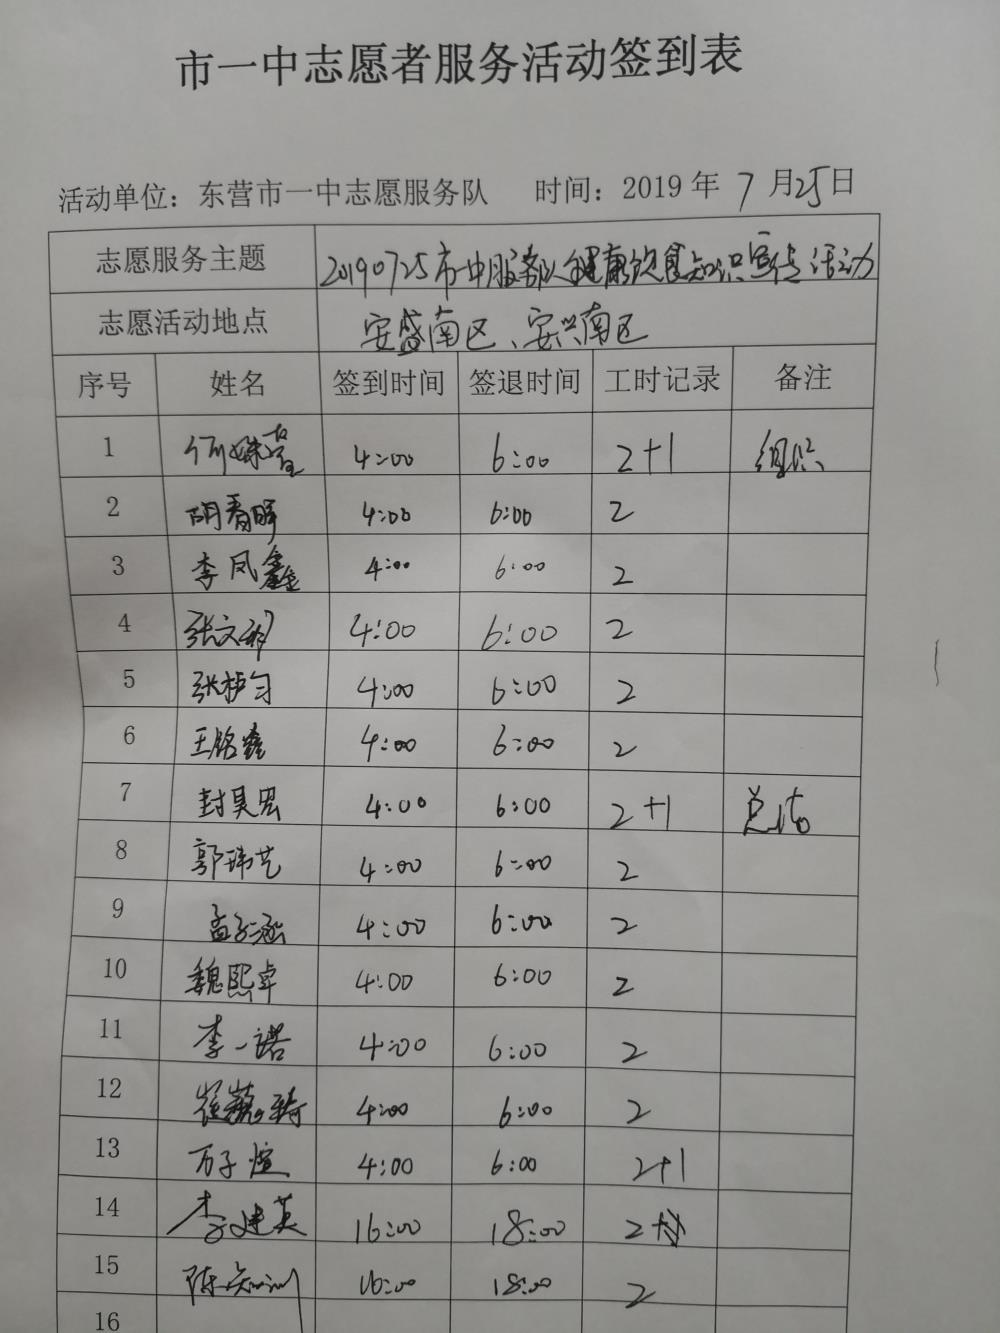 市一中志愿者服务活动签到表
活动单位：东营市一中志愿服务队 时间：2019年7月25日
志愿服务主题 20190725市一中服务队健康饮食知识宣传活动
志愿活动地点 安盛南区、安兴南区
序号 姓名 签到时间 签退时间 工时记录 备注
1 4:00 6:00 2+1 组织
2 阴春晖 4:00 6:00 2
3 李凤鑫 4:00 6:00 2
4 张文 4:00 6:00 2
5 张 4:00 6:00 2
6 王铭鑫 4:00 6:00 2
7 封昊宏 4:00 6:00 2+1 总结
8 郭玮艺 4:00 6:00 2
9 孟子涵 4:00 6:00 2
10 魏熙卓 4:00 6:00 2
11 李一诺 4:00 6:00 2
12 崔 4:00 6:00 2
13 万子煊 4:00 6:00 2+1
14 李建英 16:00 18:00 2
15 陈 16:00 18:00 2
16